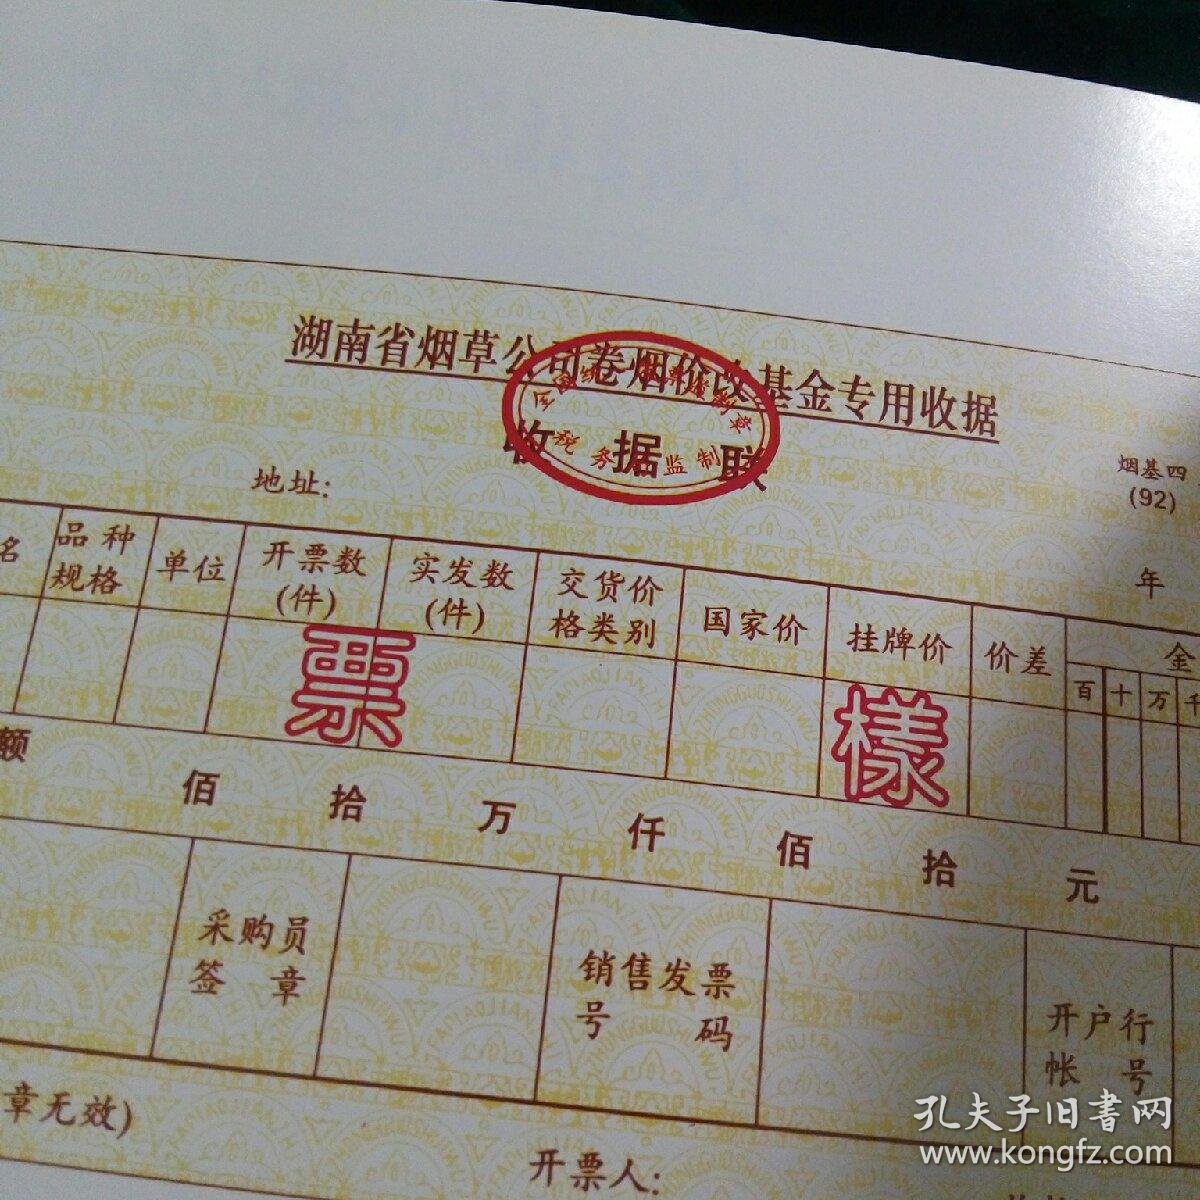 湖南省烟草公司卷烟价改基金专用收据
全国统一发票监制章
税务局监制
收据联
烟基四
(92)
地址:
年
名 品种规格 单位 开票数(件) 实发数(件) 交货价格类别 国家价 挂牌价 价差 金
百 十 万 千
票 樣
额 佰 拾 万 仟 佰 拾 元
采购员签章 销售发票号码 开户行帐号
章无效)
开票人:
孔夫子旧書网
www.kongfz.com